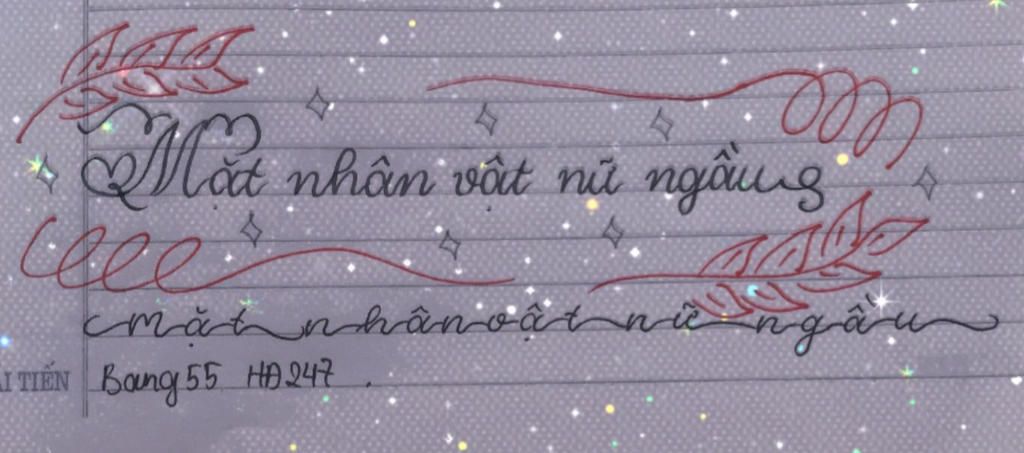 Mặt nhân vật nữ ngầu
mặt nhân vật nữ ngầu
ẢI TIẾN
Bang55 HĐ247.